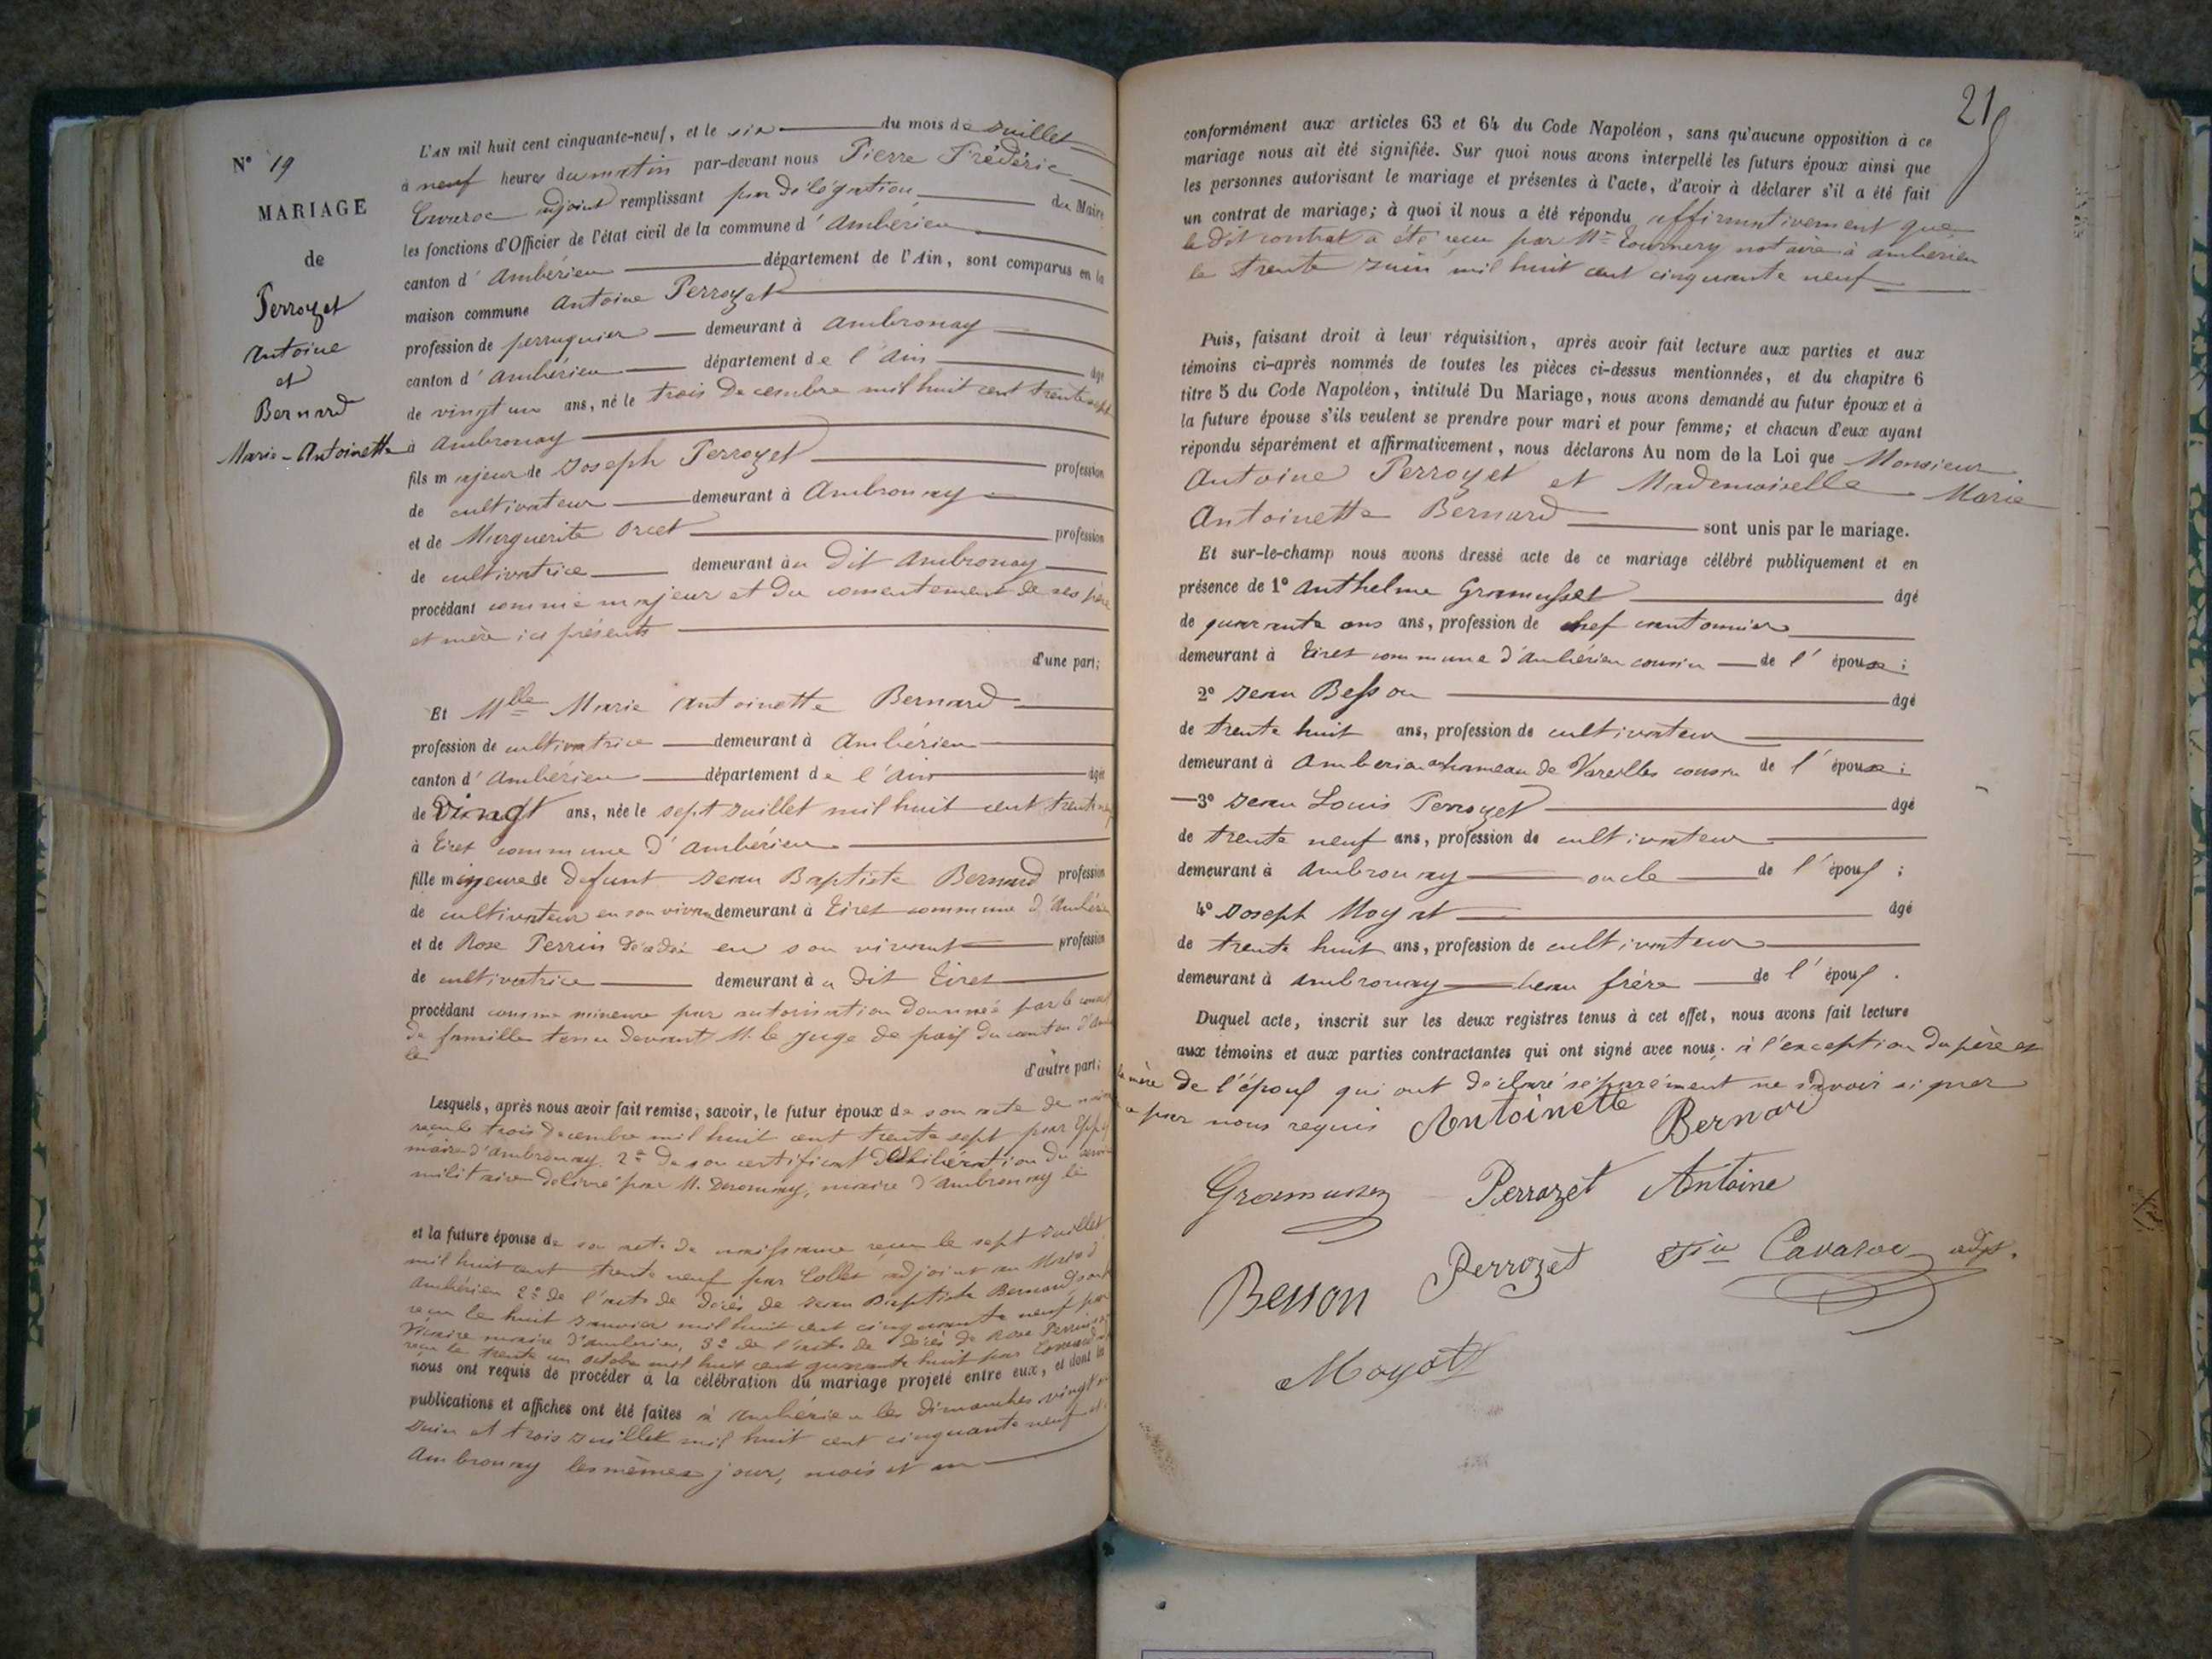 N° 19
MARIAGE
de
Perrozet
Antoine
et
Bernard
Marie-Antoinette
L'AN mil huit cent cinquante-neuf, et le six du mois de Juillet
à neuf heures du matin par-devant nous Pierre Frédéric
Cavaroc adjoint remplissant par délégation du Maire
les fonctions d'Officier de l'état civil de la commune d'Ambérieu
canton d'Ambérieu département de l'Ain, sont comparus en la
maison commune Antoine Perrozet
profession de perruquier demeurant à Ambronay
canton d'Ambérieu département de l'Ain âgé
de vingt un ans, né le trois Decembre mil huit cent trente sept
à Ambronay
fils majeur de Joseph Perrozet profession
de cultivateur demeurant à Ambronay
et de Marguerite Orcet profession
de cultivatrice demeurant au dit Ambronay
procédant comme majeur et du consentement de ses père
et mère ici présents
d'une part;
Et Mlle Marie Antoinette Bernard
profession de cultivatrice demeurant à Ambérieu
canton d'Ambérieu département de l'Ain âgée
de vingt ans, née le sept Juillet mil huit cent trente neuf
à Tiret commune d'Ambérieu
fille mineure de defunt Jean Baptiste Bernard profession
de cultivateur en son vivant demeurant à Tiret commune d'Ambérieu
et de Rose Perrin décédée en son vivant profession
de cultivatrice demeurant au dit Tiret
procédant comme mineure par autorisation donnée par le conseil
de famille tenu devant M. le juge de paix du canton d'
le
d'autre part;
Lesquels, après nous avoir fait remise, savoir, le futur époux de son acte de
reçu le trois Decembre mil huit cent trente sept par
maire d'Ambronay. 2° de son certificat de libération du service
militaire délivré par M. maire d'Ambronay le
et la future épouse de son acte de naissance reçu le sept Juillet
mil huit cent trente neuf par Collet adjoint au Maire d'
Ambérieu 2° de l'acte de décès de Jean Baptiste Bernard
reçu le huit Janvier mil huit cent cinquante neuf par
maire d'Ambérieu, 3° de l'acte de décès de Rose Perrin
reçu le trente un octobre mil huit cent quarante huit par
nous ont requis de procéder à la célébration du mariage projeté entre eux, et dont les
publications et affiches ont été faites à Ambérieu les dimanches vingt
Juin et trois Juillet mil huit cent cinquante neuf et
Ambronay les mêmes jour, mois et an
21
conformément aux articles 63 et 64 du Code Napoléon, sans qu'aucune opposition à ce
mariage nous ait été signifiée. Sur quoi nous avons interpellé les futurs époux ainsi que
les personnes autorisant le mariage et présentes à l'acte, d'avoir à déclarer s'il a été fait
un contrat de mariage; à quoi il nous a été répondu affirmativement que
le dit contrat a été reçu par Me Tournery notaire à Ambérieu
le trente Juin mil huit cent cinquante neuf
Puis, faisant droit à leur réquisition, après avoir fait lecture aux parties et aux
témoins ci-après nommés de toutes les pièces ci-dessus mentionnées, et du chapitre 6
titre 5 du Code Napoléon, intitulé Du Mariage, nous avons demandé au futur époux et à
la future épouse s'ils veulent se prendre pour mari et pour femme; et chacun d'eux ayant
répondu séparément et affirmativement, nous déclarons Au nom de la Loi que Monsieur
Antoine Perrozet et Mademoiselle Marie
Antoinette Bernard sont unis par le mariage.
Et sur-le-champ nous avons dressé acte de ce mariage célébré publiquement et en
présence de 1° Anthelme Gramusset âgé
de quarante ans ans, profession de chef cantonnier
demeurant à Tiret commune d'Ambérieu cousin de l'épouse;
2° Jean Besson âgé
de trente huit ans, profession de cultivateur
demeurant à Ambérieu hameau de Vareilles cousin de l'épouse;
3° Jean Louis Perrozet âgé
de trente neuf ans, profession de cultivateur
demeurant à Ambronay oncle de l'époux;
4° Joseph Moyat âgé
de trente huit ans, profession de cultivateur
demeurant à Ambronay beau frère de l'époux.
Duquel acte, inscrit sur les deux registres tenus à cet effet, nous avons fait lecture
aux témoins et aux parties contractantes qui ont signé avec nous. à l'exception du père et
la mère de l'époux qui ont déclaré séparément ne savoir signer
par nous requis Antoinette Bernard
Gramusset Perrozet Antoine
Besson Perrozet Cavaroc adjt.
Moyat